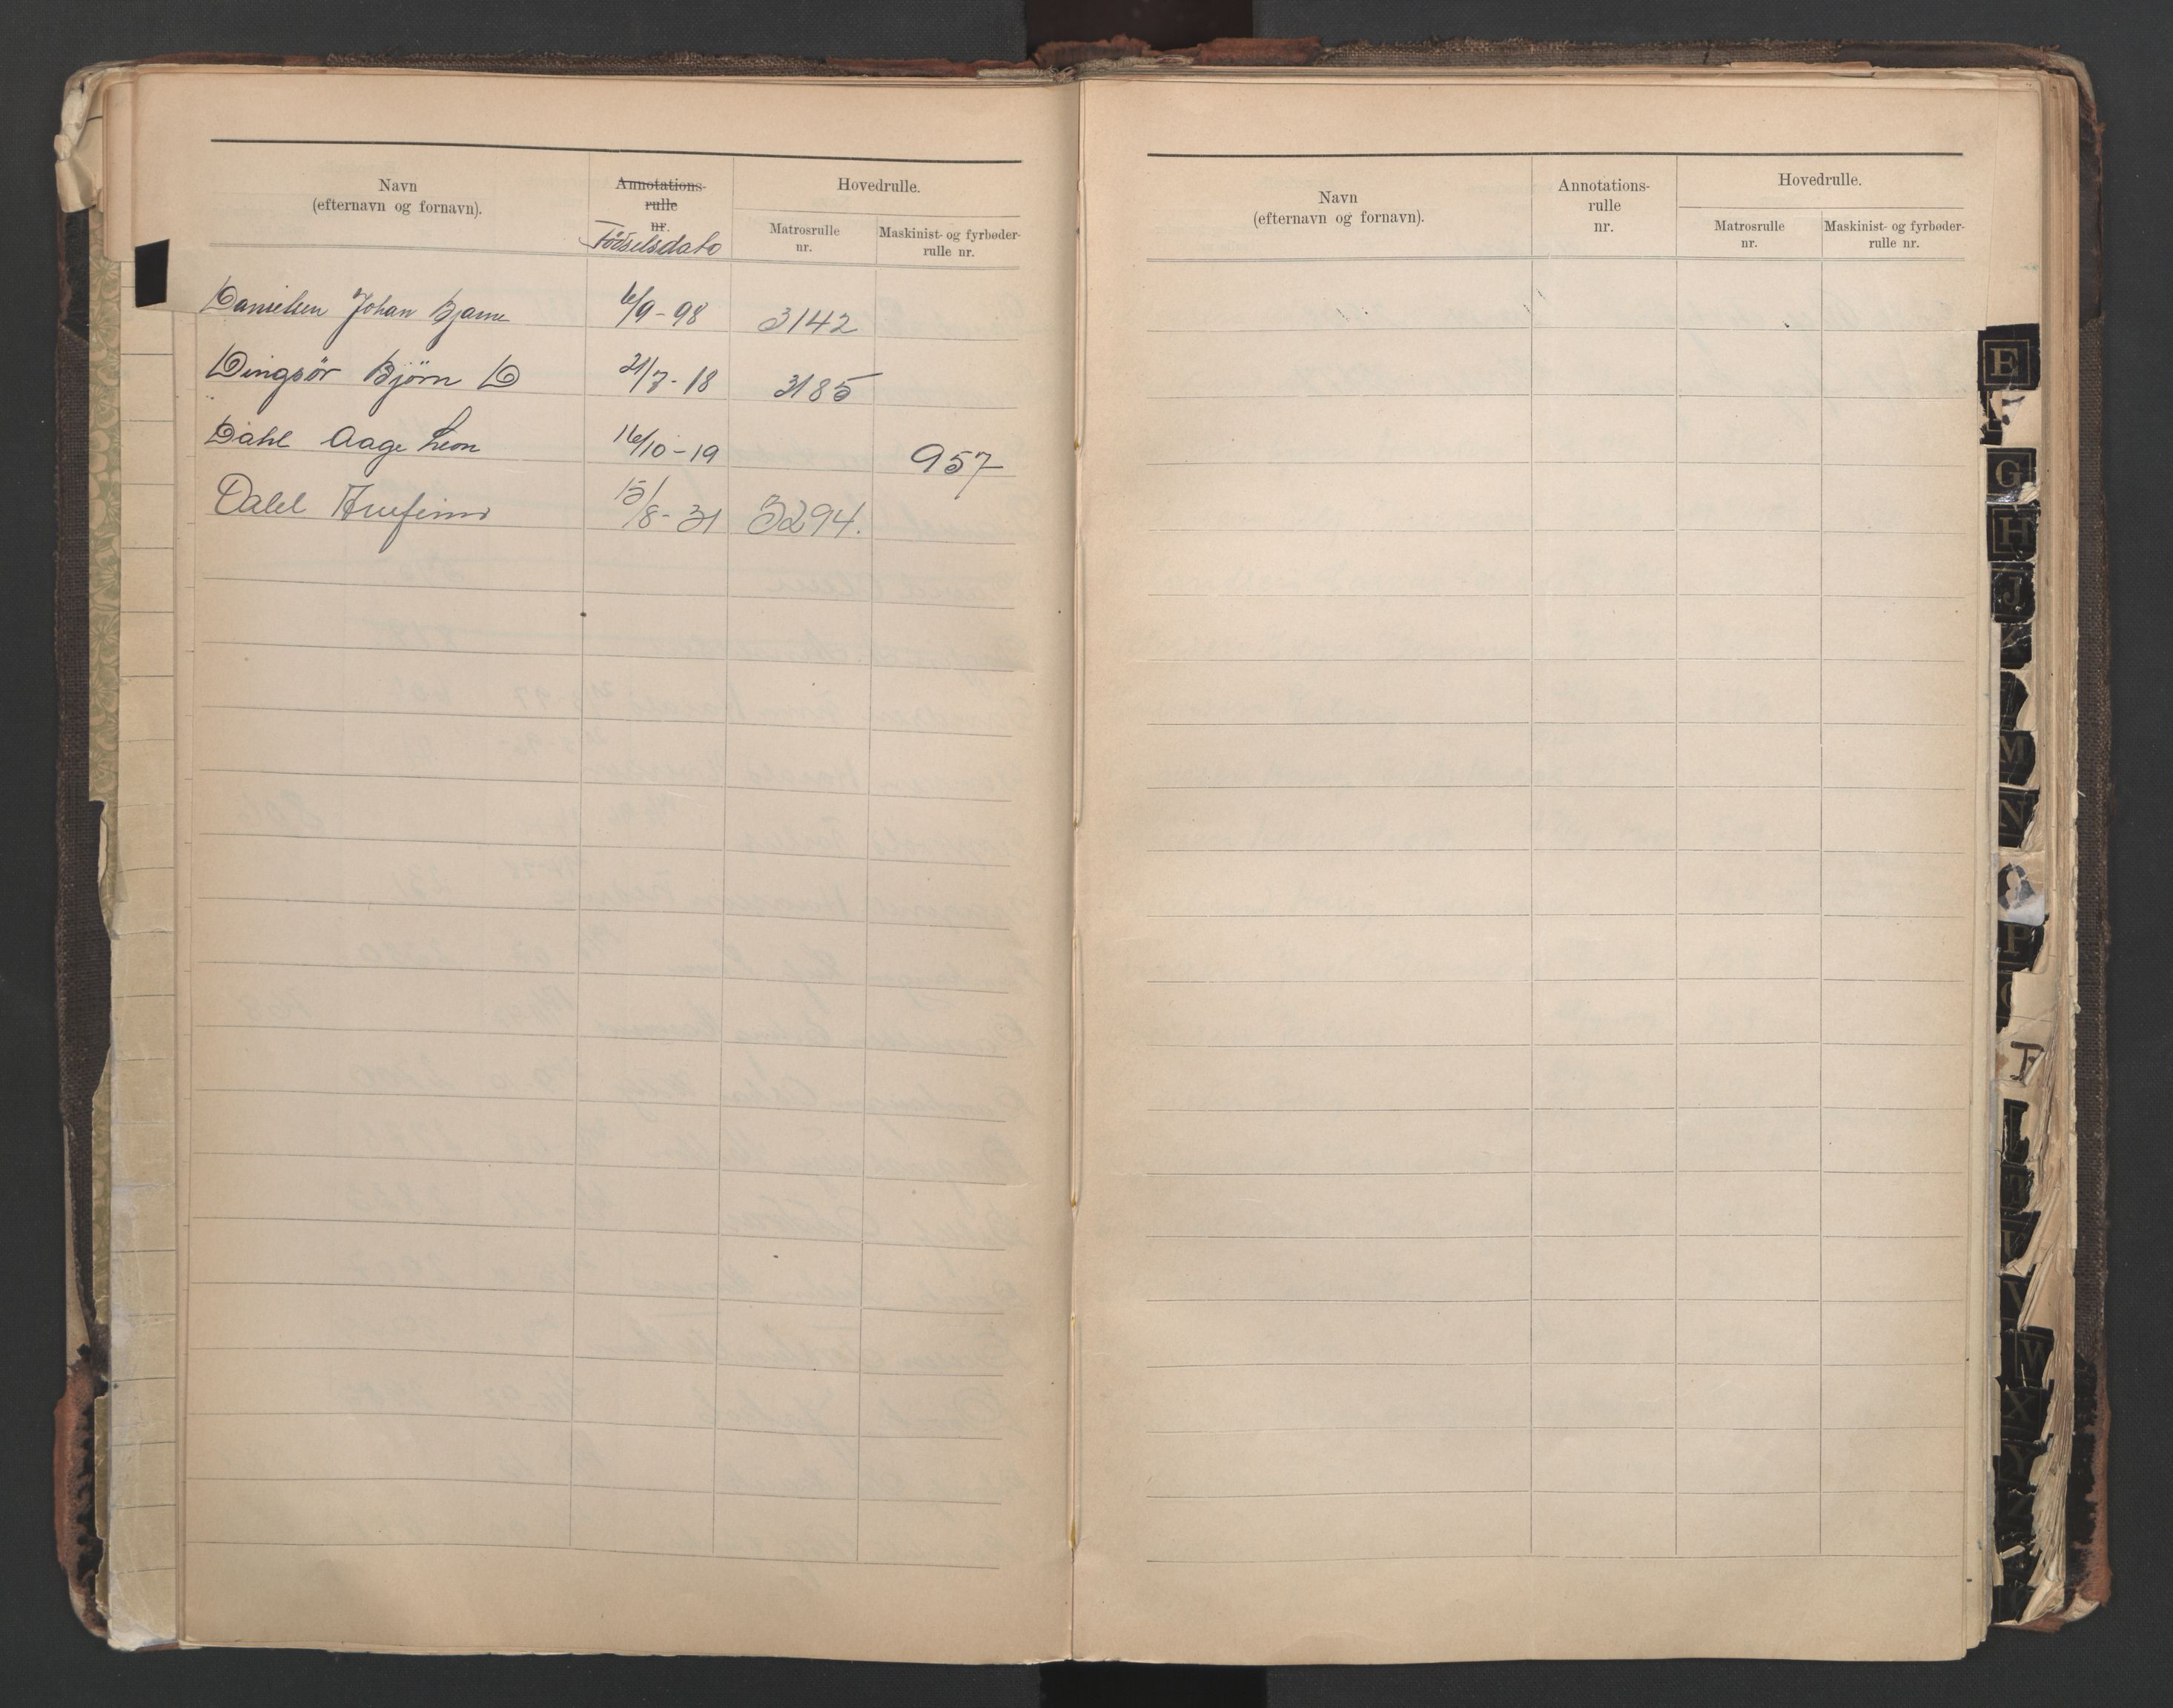 Navn
(efternavn og fornavn).
Annotations-
rulle
nr.
Födselsdato
Hovedrulle.
Matrosrulle
nr.
Maskinist- og fyrbøder-
rulle nr.
Danielsen Johan Bjarne 6/9-98 3142
Dingsör Björn D 21/7-18 3185
Dahl Aage Leon 16/10-19 957
Dahl 15/8-31 3294.
Navn
(efternavn og fornavn).
Annotations-
rulle
nr.
Hovedrulle.
Matrosrulle
nr.
Maskinist- og fyrbøder-
rulle nr.
E
G
H
J
M
N
P
W
X
Y
Z